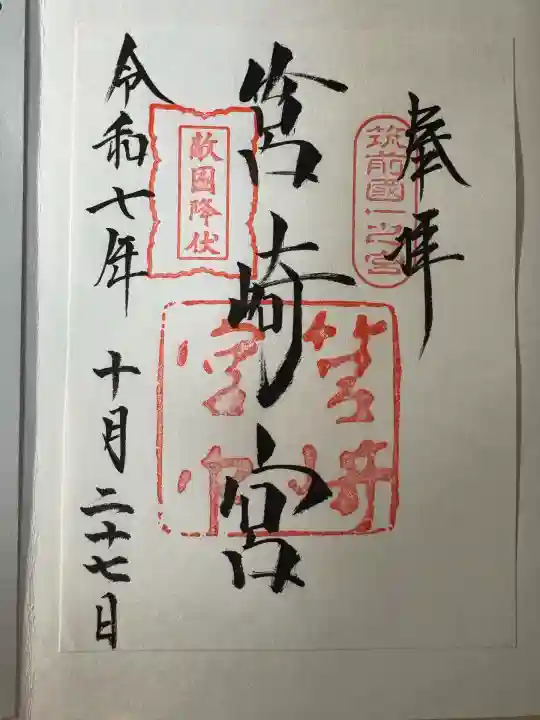 奉拝
筑前國一之宮
筥崎宮
敵国降伏
令和七年 十月二十七日